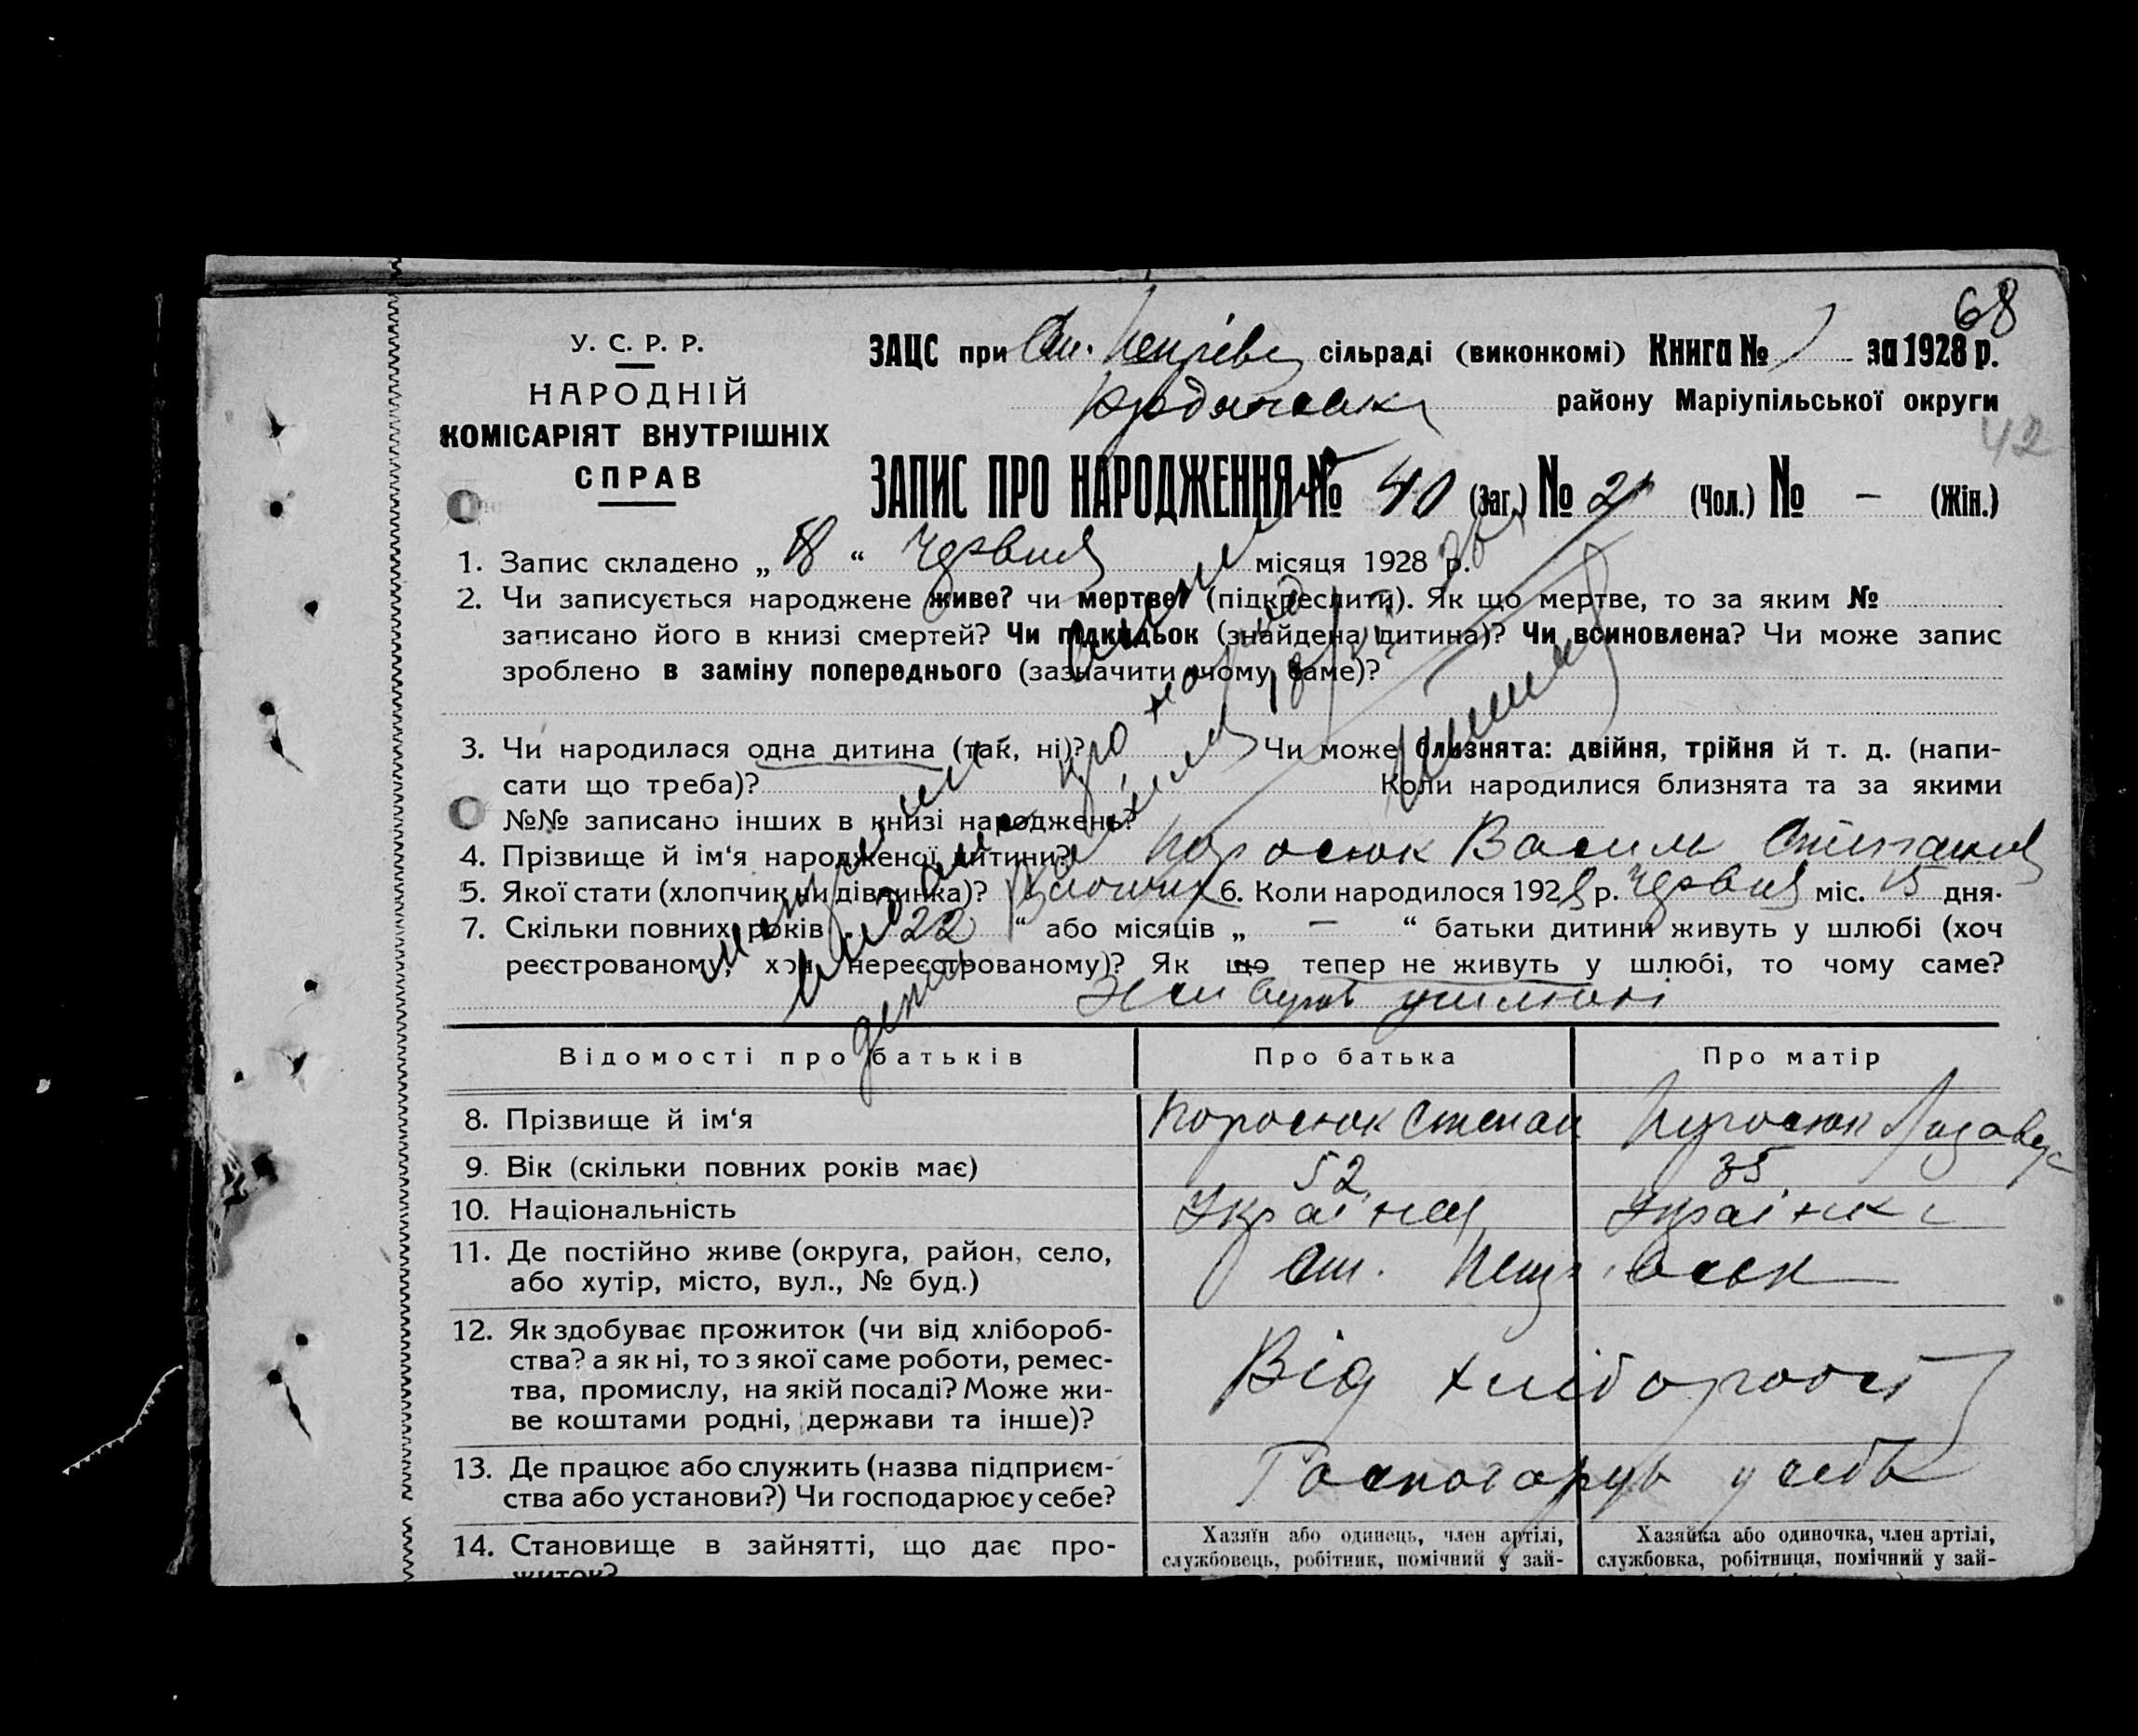 68
У. С. Р. Р.
НАРОДНІЙ
КОМІСАРІЯТ ВНУТРІШНІХ
СПРАВ
ЗАЦС при Ст. сільраді (виконкомі) Книга № за 1928 р.
району Маріупільської округи
42
ЗАПИС ПРО НАРОДЖЕННЯ № 40 (Заг.) № 21 (Чол.) № – (Жін.)
1. Запис складено „ 18 “ Червня місяця 1928 р.
2. Чи записується народжене живе? чи мертве? (підкреслити). Як що мертве, то за яким №
записано його в книзі смертей? Чи підкидьок (знайдена дитина)? Чи всиновлена? Чи може запис
зроблено в заміну попереднього (зазначити чому саме)?
3. Чи народилася одна дитина (так, ні)? Чи може близнята: двійня, трійня й т. д. (напи-
сати що треба)? Коли народилися близнята та за якими
№№ записано інших в книзі народжень?
4. Прізвище й ім‘я народженої дитини? Поросюк Василь
5. Якої стати (хлопчик чи дівчинка)? Хлопчик 6. Коли народилося 1928 р. Червня міс. 15 дня.
7. Скільки повних років „ 22 “ або місяців „ – “ батьки дитини живуть у шлюбі (хоч
реєстрованому, хоч нереєстрованому)? Як що тепер не живуть у шлюбі, то чому саме?
Живуть ушлюбі
Відомості про батьків Про батька Про матір
8. Прізвище й ім‘я Поросюк Степан Поросюк
9. Вік (скільки повних років має) 52 35
10. Національність Українец Українка
11. Де постійно живе (округа, район, село,
або хутір, місто, вул., № буд.) Ст.
12. Як здобуває прожиток (чи від хлібороб-
ства? а як ні, то з якої саме роботи, ремес-
тва, промислу, на якій посаді? Може жи-
ве коштами родні, держави та інше)? Від
13. Де працює або служить (назва підприєм-
ства або установи?) Чи господарює у себе? у себе
14. Становище в зайнятті, що дає про-
житок?
Хазяїн або одинець, член артілі,
службовець, робітник, помічний у зай-
Хазяйка або одиночка, член артілі,
службовка, робітниця, помічний у зай-